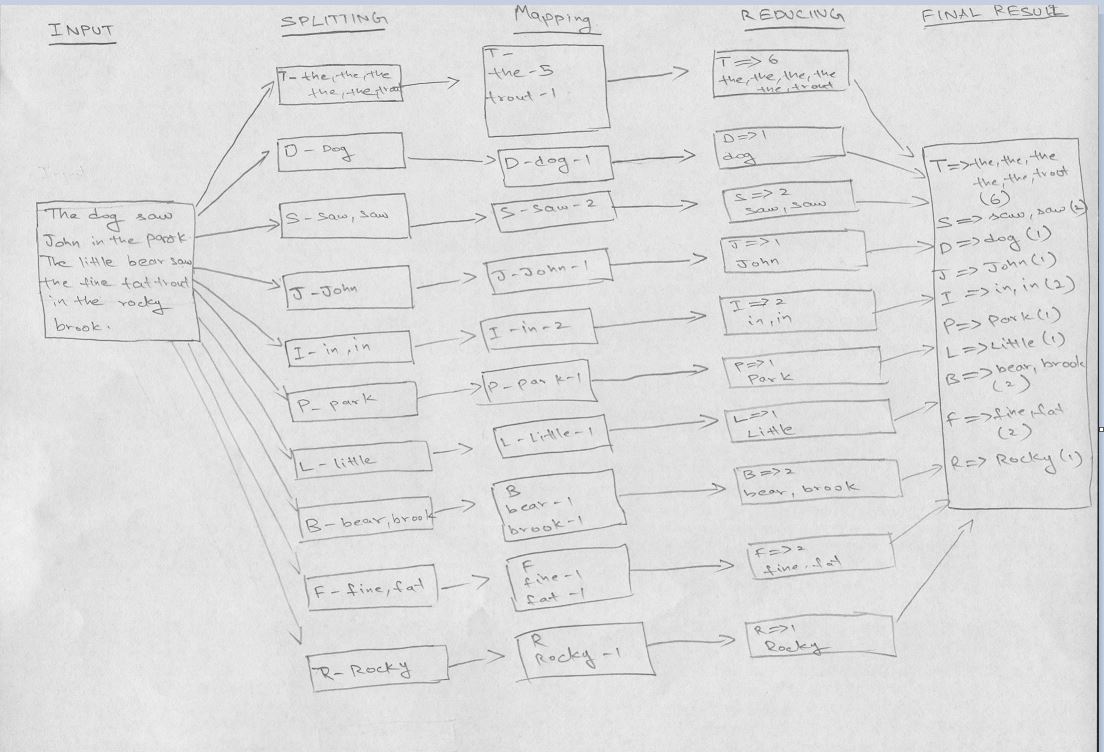 INPUT
SPLITTING
Mapping
REDUCING
FINAL RESULT
Input
The dog saw
John in the park
The little bear saw
the fine fat trout
in the rocky
brook.
T- the, the, the
the, the, trout
D - Dog
S - Saw, saw
J - John
I - in, in
P - park
L - little
B - bear, brook
F - fine, fat
R - Rocky
T -
the - 5
trout - 1
D - dog - 1
S - Saw - 2
J - John - 1
I - in - 2
P - park - 1
L - Little - 1
B
bear - 1
brook - 1
F
fine - 1
fat - 1
R
Rocky - 1
T => 6
the, the, the, the
the, trout
D => 1
dog
S => 2
saw, saw
J => 1
John
I => 2
in, in
P => 1
Park
L => 1
Little
B => 2
bear, brook
F => 2
fine, fat
R => 1
Rocky
T => the, the, the
the, the, trout
(6)
S => saw, saw (2)
D => dog (1)
J => John (1)
I => in, in (2)
P => Park (1)
L => Little (1)
B => bear, brook
(2)
F => fine, fat
(2)
R => Rocky (1)